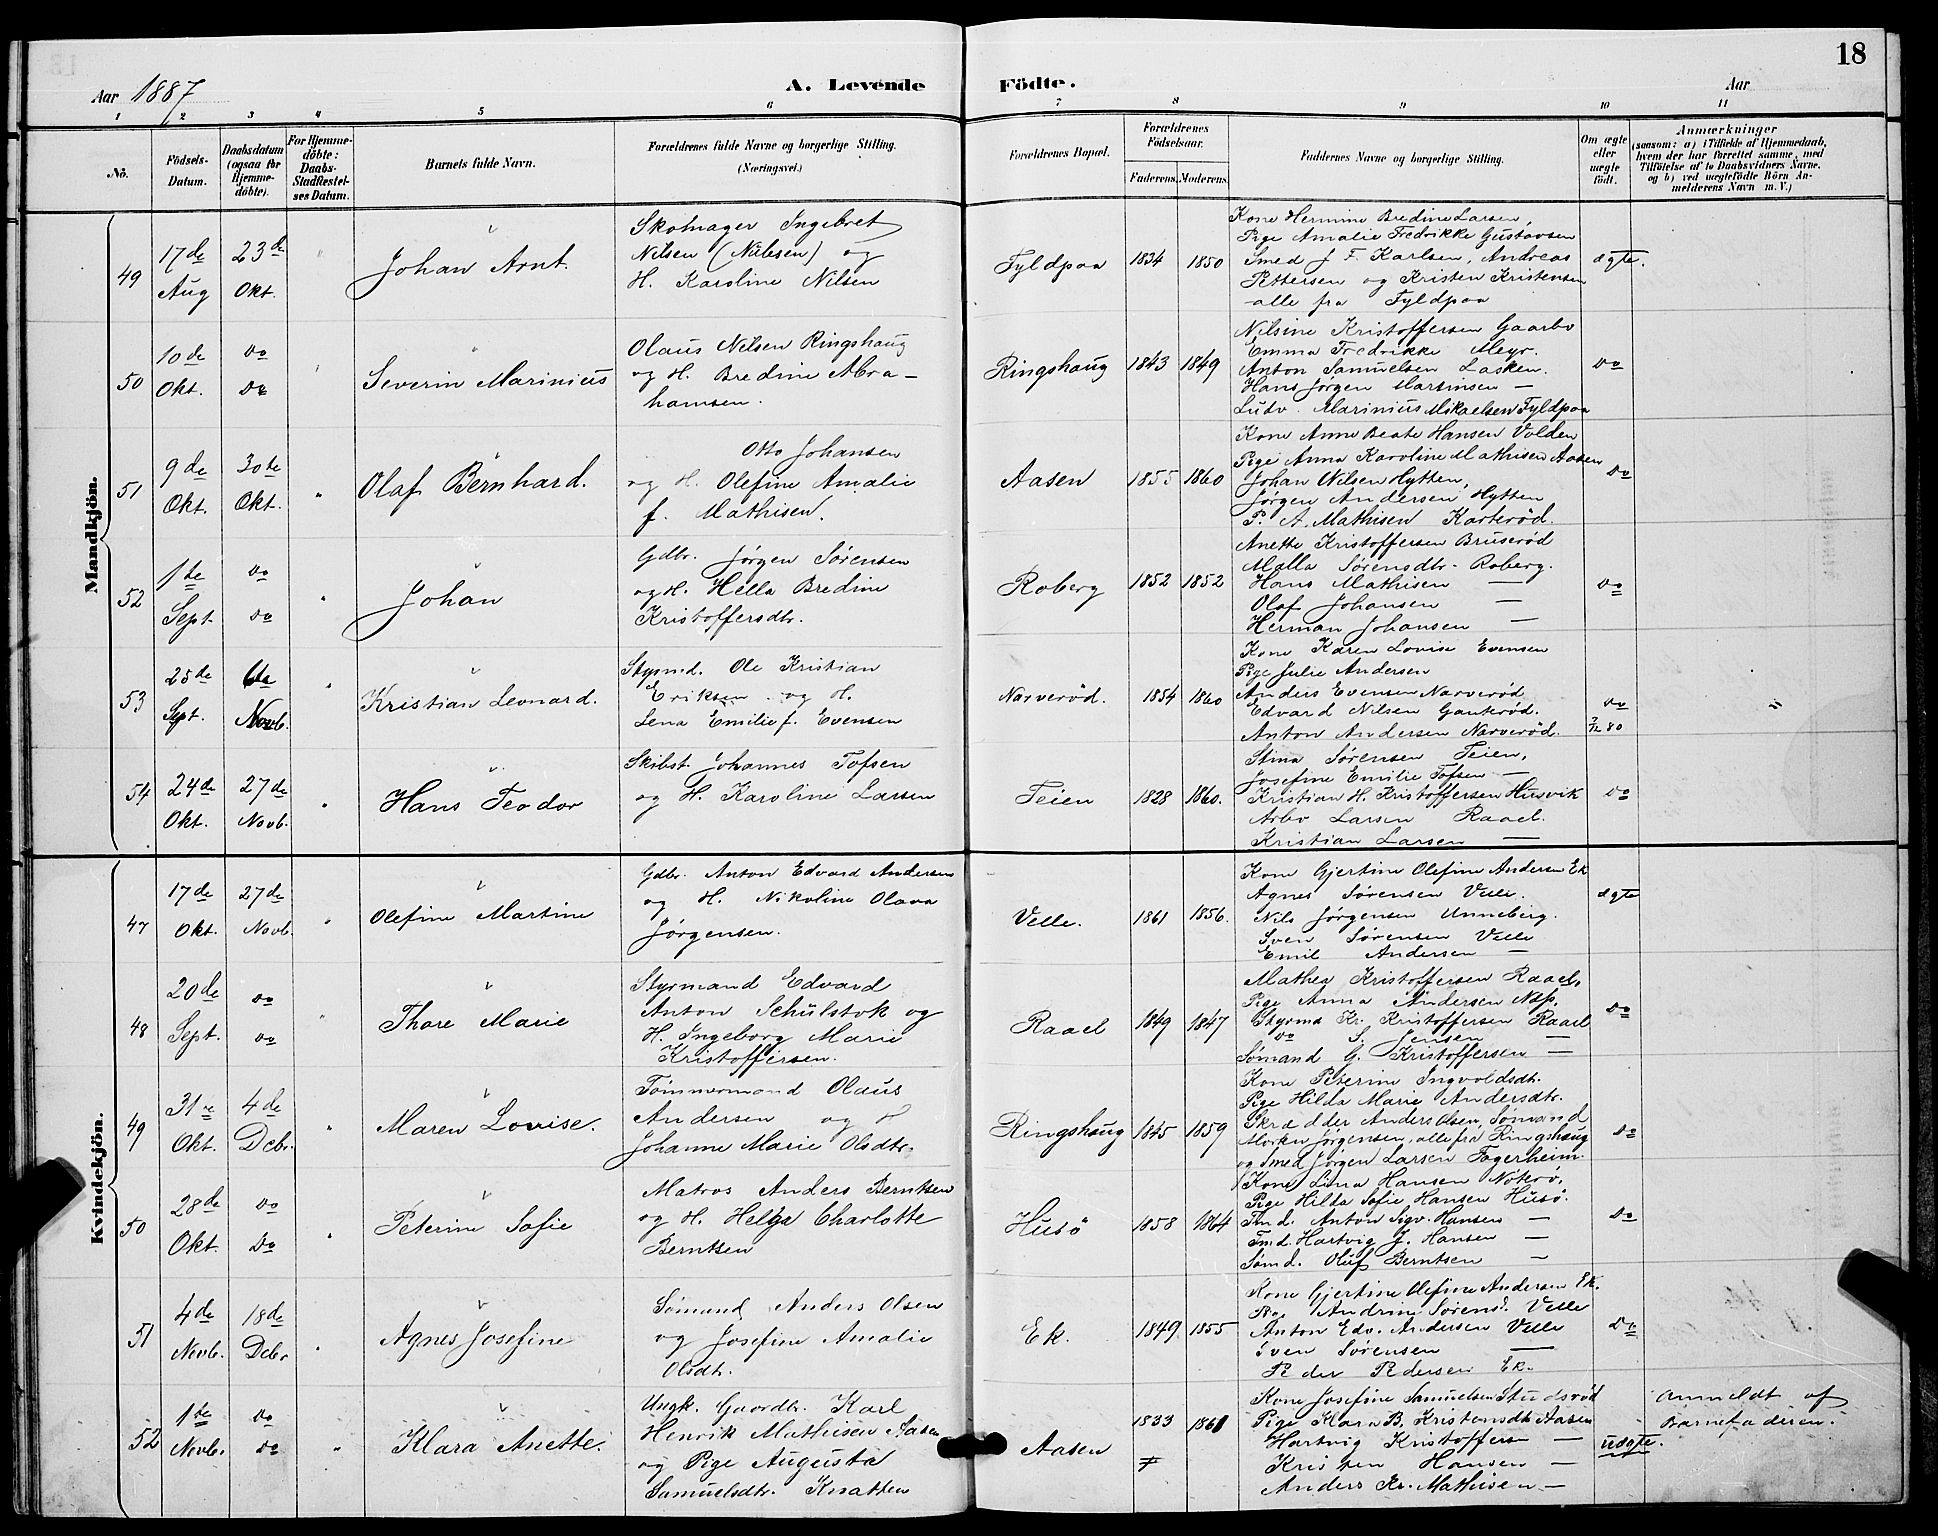 18
Aar 1887
A. Levende Födte.
Aar
1 2 3 4 5 6 7 8 9 10 11
No.
Födsels-Datum.
Daabsdatum (ogsaa for Hjemme-döbte).
For Hjemme-döbte: Daabs-Stadfæstel-ses Datum.
Barnets fulde Navn.
Forældrenes fulde Navne og borgerlige Stilling. (Næringsvei.)
Forældrenes Bopæl.
Forældrenes Födselsaar.
Faderens. Moderens.
Faddernes Navne og borgerlige Stilling.
Om ægte eller uægte født.
Anmærkninger
(saasom: a) i Tilfælde af Hjemmedaab, hvem der har forrettet samme, med Tilföielse af to Daabsvidners Navne, og b) ved uægtefödte Börn An-melderens Navn m. V.)
Mandkjön.
49
17de Aug
23de Okt.
Johan Arnt.
Skomager Ingebret
Nilsen (Nilesen) og
H. Karoline Nilsen
Fyldpaa
1834 1850
Kone Hermine Bredine Larsen,
Pige Amalie Fredrikke Gustavsen
Smed J F. Karlsen, Andreas
Pettersen og Kristen Kristensen
alle fra Fyldpaa
ægte.
50
10de Okt.
do do
Severin Marinius
Olaus Nilsen Ringshaug
og H. Bredine Abra-
hamsen.
Ringshaug
1843 1849
Nilsine Kristoffersen Gaarbo
Emma Fredrikke Meyr.
Anton Samuelsen Lasken.
Hans Jørgen Martinsen —
Ludv. Marinius Mikaelsen Fyldpaa
do
51
9de Okt.
30te Okt.
Olaf Bernhard.
Otto Johansen
og H. Olefine Amalie
f. Mathisen.
Aasen
1855 1860
Kone Anne Beate Hansen Volden
Pige Anna Karoline Mathisen Aasen
Johan Nilsen Hytten,
Jørgen Andersen Hytten
P. A. Mathisen Karterød.
do
52
1te Sept.
do do
Johan
Gdbr. Jørgen Sørensen
og H. Hella Bredine
Kristoffersdtr.
Roberg
1852 1852
Anette Kristoffersen Bruserød
Malla Sørensdtr. Roberg.
Hans Mathisen —
Olaf Johansen —
Herman Johansen —
do
53
25de Sept.
6te Novb.
Kristian Leonard.
Stymd. Ole Kristian
Eriksen og H.
Lena Emilie f. Evensen
Narverød.
1854 1860
Kone Karen Lovise Evensen
Pige Julie Andersen
Anders Evensen Narverød
Edvard Nilsen Gauterød.
Anton Andersen Narverød.
do
7/12 80
54
24de Okt.
27de Novb.
Hans Teodor
Skibst. Johannes Tofsen
og H. Karoline Larsen
Teien
1828 1860.
Stina Sørensen Teien,
Josefine Emilie Tofsen —
Kristian H. Kristoffersen Husvik
Arbo Larsen Raael.
Kristian Larsen —
do
Kvindekjön.
47
17de Okt.
27de Novb.
Olefine Martine
Gdbr. Anton Edvard Andersen
og H. Nikoline Olava
Jørgensen.
Velle.
1861 1856.
Kone Gjertine Olefine Andersen Ek
Agnes Sørensen Velle.
Nils Jørgensen Unneberg.
Sven Sørensen Velle
Emil Andersen —
ægte
48
20de Sept.
do do
Thare Marie
Styrmand Edvard
Anton Schulstok og
H. Ingeborg Marie
Kristoffersen.
Raael
1849 1847
Mathea Kristoffersen Raael,
Pige Anna Andersen Nøp.
Styrmd Kr. Kristoffersen Raael
do S. Jensen —
Sømand G. Kristoffersen —
do
49
31te Okt.
4de Dcbr.
Maren Lovise.
Tømmermand Olaus
Andersen og H
Johanne Marie Olsdtr.
Ringshaug
1845 1859
Kone Peterine Ingvoldsdtr.
Pige Hilda Marie Andersdtr.
Skrædder Anders Olsen, Sømand
Morten Jørgensen, alle fra Ringshaug
og Smed Jørgen Larsen Fagerheim.
do
50
28de Okt.
do do
Peterine Sofie
Matros Anders Berntsen
og H. Helga Charlotte
Berntsen
Husö
1858 1864
Kone Lina Hansen Nøterø,
Pige Hilda Sofie Hansen Husö.
Tmd. Anton Sigv. Hansen —
Tmd. Hartvig J. Hansen —
Sømd. Oluf Berntsen —
do
51
4de Novb.
18de Dcbr
Agnes Josefine
Sømand Anders Olsen
og Josefine Amalie
Olsdtr.
Ek.
1849 1855
Kone Gjertine Olefine Andersen Ek.
Andrine Sørensd. Velle
Anton Edv. Andersen Velle
Sven Sørensen —
Peder Pedersen Ek.
do
52
1te Novb.
do do
Klara Anette.
Ungk. Gaardbr. Karl
Henrik Mathisen Aasen
og Pige Augusta
Samuelsdtr. Knatten
Aasen
1833 1861
Kone Josefine Samuelsen Studsrød
Pige Klara B. Kristensdtr Aasen
Hartvig Kristoffers —
Kristen Hansen —
Anders Kr. Mathisen —
uægte.
anmeldt af
Barnefaderen.